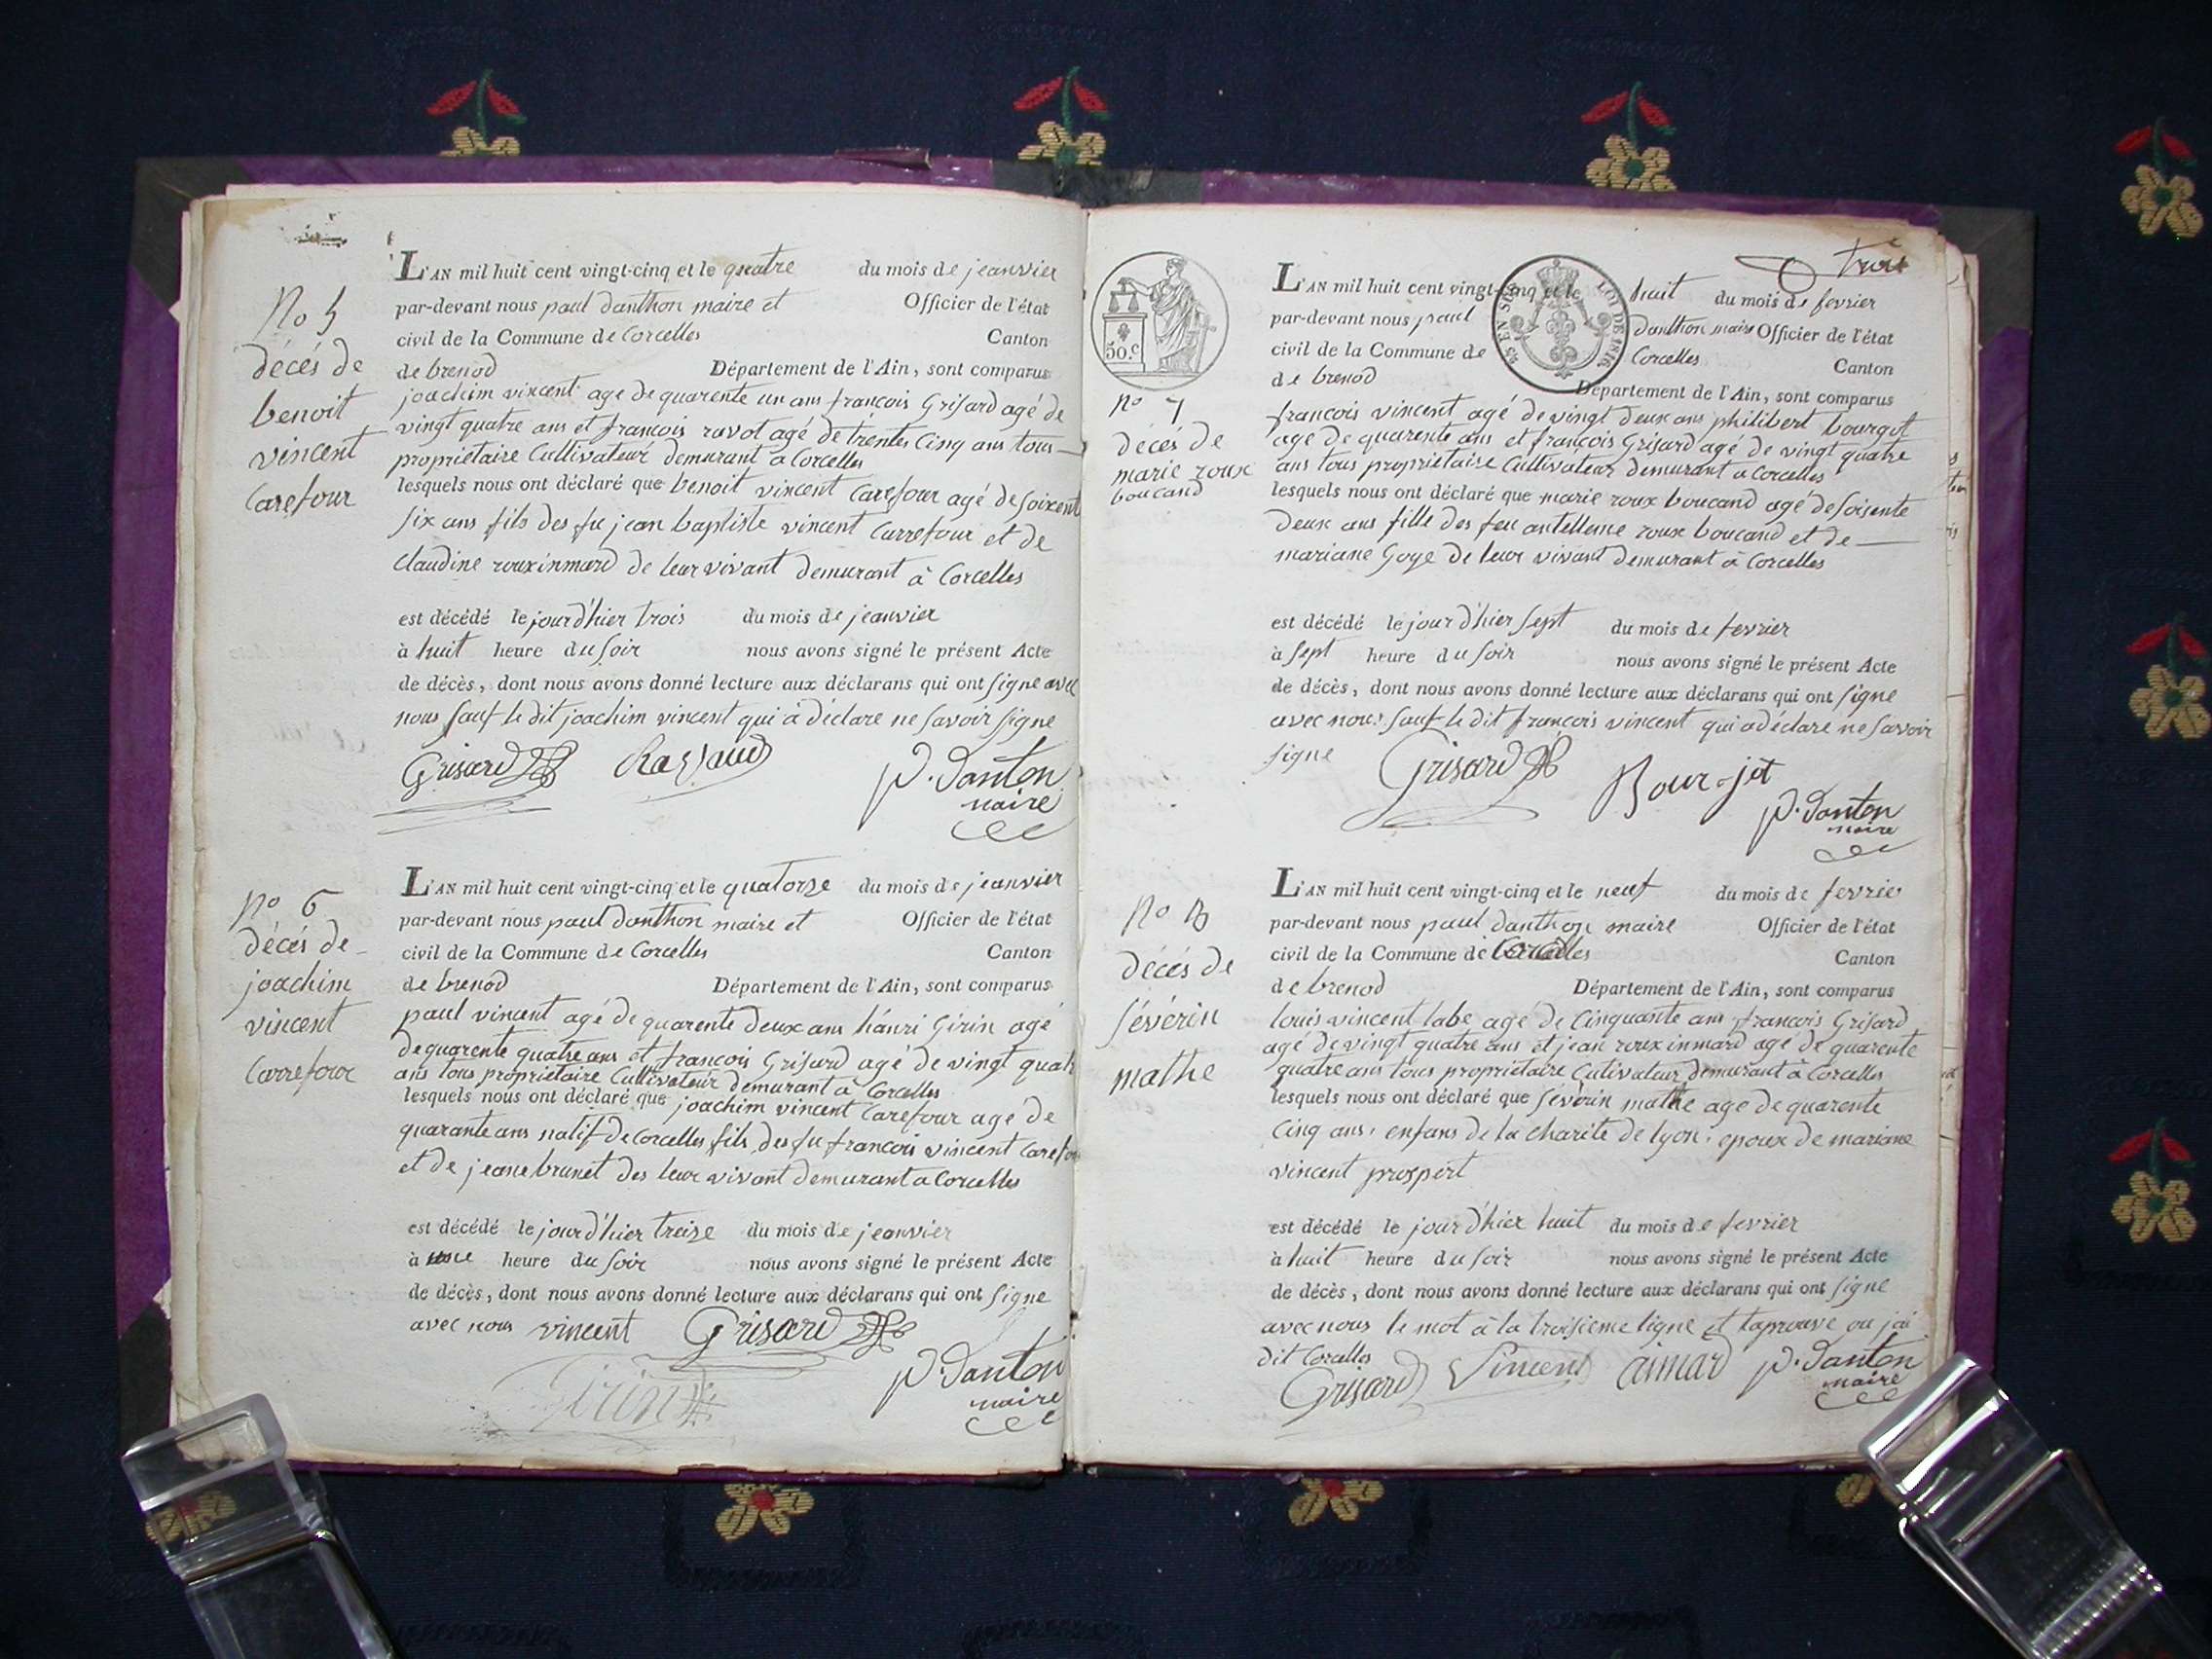 No 5
décés de
benoit
vincent
Carefour
L'AN mil huit cent vingt-cinq et le quatre du mois de jeanvier
par-devant nous paul danthon maire et Officier de l'état
civil de la Commune de Corcelles Canton
de brenod Département de l'Ain, sont comparus
joachim vincent age de quarente un ans françois Grisard agé de
vingt quatre ans et françois ravot agé de trentes Cinq ans tous
propriétaire Cultivateur demurant a Corcelles
lesquels nous ont déclaré que benoit vincent Carefour agé de soixent
six ans fils des fu jean baptiste vincent Carrefour et de
claudine rouxinmard de leur vivant demurant à Corcelles
est décédé le jour d'hier trois du mois de jeanvier
à huit heure du soir nous avons signé le présent Acte
de décès, dont nous avons donné lecture aux déclarans qui ont signe avec
nous sauf le dit joachim vincent qui à déclare ne savoir signe
Grisard Ravaud P. Danton
maire
No 6
décés de
joachim
vincent
Carrefour
L'AN mil huit cent vingt-cinq et le quatorze du mois de jeanvier
par-devant nous paul danthon maire et Officier de l'état
civil de la Commune de Corcelles Canton
de brenod Département de l'Ain, sont comparus
paul vincent agé de quarente deux ans hánri Girin agé
de quarente quatre ans et françois Grisard agé de vingt quatr
ans tous propriétaire Cultivateur demurant a Corcelles
lesquels nous ont déclaré que joachim vincent Carefour agé de
quarante ans natif de Corcelles fils des fu françois vincent Carefou
et de jeane brunet des leur vivant demurant a Corcelles
est décédé le jour d'hier treize du mois de jeanvier
à une heure du soir nous avons signé le présent Acte
de décès, dont nous avons donné lecture aux déclarans qui ont signe
avec nous vincent Grisard
Girin P. Danton
maire
trois
50.c
LOI DE 1816
L'AN mil huit cent vingt-cinq et le huit du mois de fevrier
par-devant nous paul danthon maire Officier de l'état
civil de la Commune de Corcelles Canton
de brenod Département de l'Ain, sont comparus
no 7
décés de
marie roux
boucand
françois vincent agé de vingt deux ans philibert bourgot
agé de quarente ans et françois Grisard agé de vingt quatre
ans tous propriétaire Cultivateur demurant a Corcelles
lesquels nous ont déclaré que marie roux boucand agé de soisente
deux ans fille des feu antelleme roux boucand et de
mariane Goye de leur vivant demurant à Corcelles
est décédé le jour d'hier sept du mois de fevrier
à sept heure du soir nous avons signé le présent Acte
de décès, dont nous avons donné lecture aux déclarans qui ont signe
avec nous sauf le dit françois vincent qui a déclaré ne savoir
signe Grisard Bourgjot P. Danton
maire
No 8
décés de
sévérin
mathe
L'AN mil huit cent vingt-cinq et le neuf du mois de fevrier
par-devant nous paul danthon maire Officier de l'état
civil de la Commune de Corcelles Canton
de brenod Département de l'Ain, sont comparus
louis vincent labe agé de Cinquante ans françois Grisard
agé de vingt quatre ans et jean roux inmard agé de quarente
quatre ans tous propriétaire Cutivateur demurant à Corcelles
lesquels nous ont déclaré que sévérin mathe age de quarente
Cinq ans, enfans de la charite de lyon, epoux de mariane
vincent prospert
est décédé le jour d'hier huit du mois de fevrier
à huit heure du soir nous avons signé le présent Acte
de décès, dont nous avons donné lecture aux déclarans qui ont signe
avec nous le mot à la troisieme ligne et taprouve ou j'ai
dit Corcelles
Grisard Vincent aimard P. Danton
maire